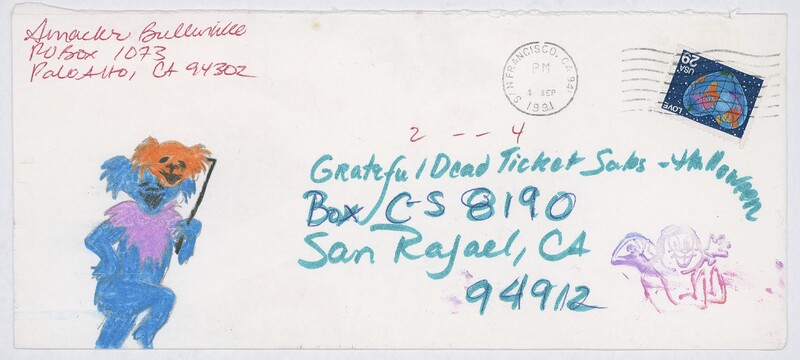 PO Box 1073
Palo Alto, CA 94302
SAN FRANCISCO, CA 941
PM
4 SEP
1991
29
USA
LOVE
2 - - - 4
Grateful Dead Ticket Sales - Halloween
Box CS 8190
San Rafael, CA
94912